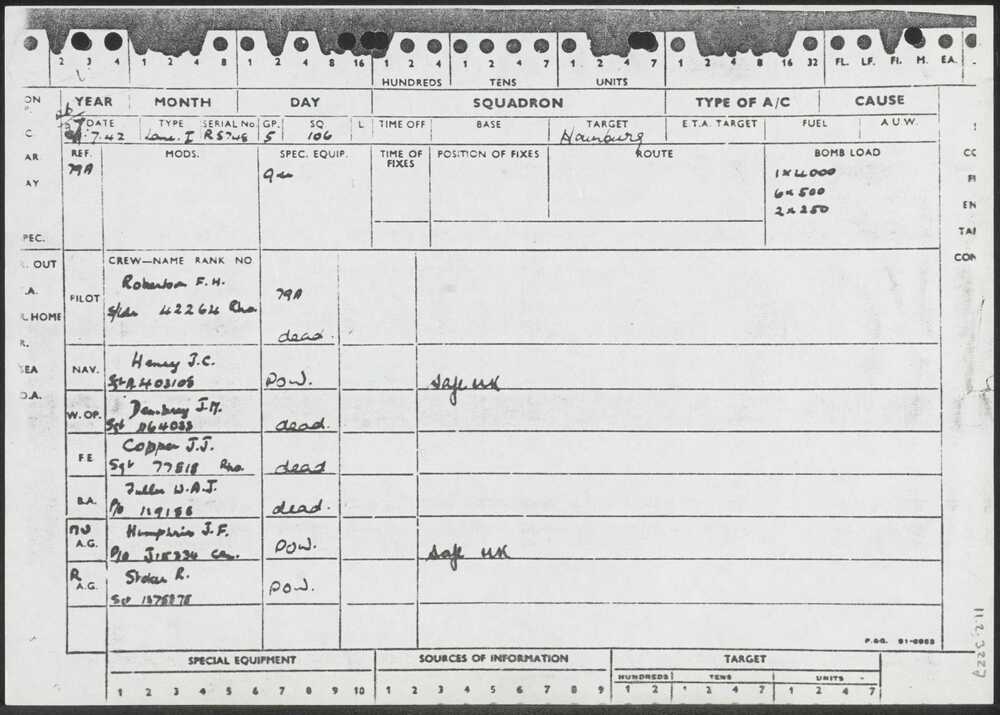 2 3 4 1 2 4 8 1 2 4 8 16 1 2 4 1 2 4 7 1 2 4 7 1 2 4 8 16 32 FL. LF. FI. M. EA.
HUNDREDS TENS UNITS
ON YEAR MONTH DAY SQUADRON TYPE OF A/C CAUSE
DATE TYPE SERIAL No. GP. SQ. L TIME OFF BASE TARGET E.T.A. TARGET FUEL A.U.W.
7.42 Lanc. I R5748 5 106 Hamburg
C
REF. MODS. SPEC. EQUIP. TIME OF FIXES POSITION OF FIXES ROUTE BOMB LOAD
AR 79A 1 x 4000
AY 6 x 500
2 x 250
PEC.
OUT CREW—NAME RANK NO
.A. PILOT Robertson F.H. 79A
HOME S/Ldr 42264 Rho.
R. dead
EA NAV. Henry J.C.
Sgt A403108 POW. Safe UK
O.A. W. OP. J.M.
Sgt dead.
F.E. Copper J.J.
Sgt 77818 Rho. dead
B.A. Fuller W.A.J.
P/O 119186 dead.
MU A.G. Humphries J.F.
P/O J15234 Can. POW. Safe UK
R A.G. R.
POW.
P.&G. 51-6053
11.2.3227
SPECIAL EQUIPMENT SOURCES OF INFORMATION TARGET
HUNDREDS TENS UNITS
1 2 3 4 5 6 7 8 9 10 1 2 3 4 5 6 7 8 9 1 2 1 2 4 7 1 2 4 7